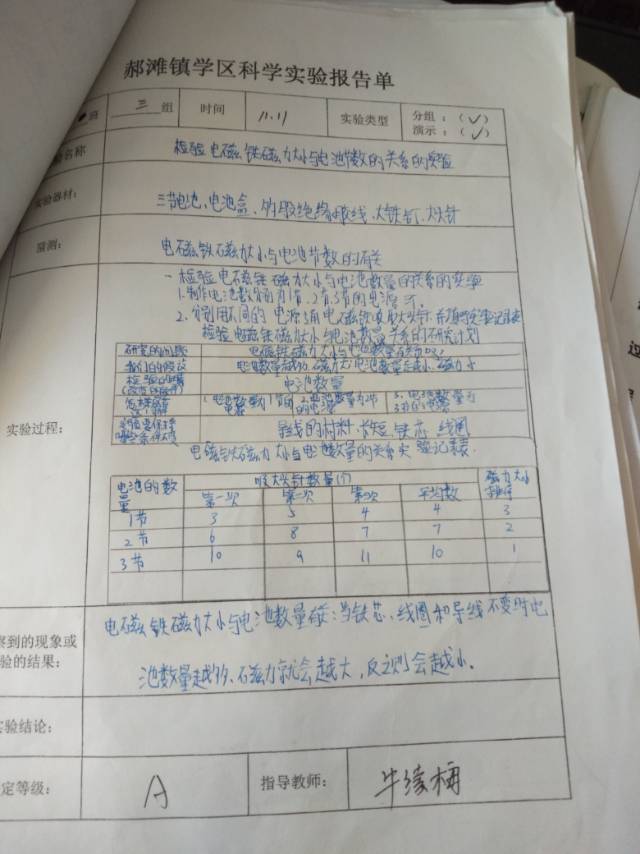 郝滩镇学区科学实验报告单
班 三 组 时间 11.11 实验类型 分组：（✓）
演示：（✓）
名称 检验电磁铁磁力大小与电池节数的关系的实验
实验器材： 三节电池、电池盒、绝缘 线、大铁钉、大头针
猜测： 电磁铁磁力大小与电池节数有关
实验过程：
一 检验电磁铁磁力大小与电池数量的关系的实验
1.制作电池数分别为1节、2节、3节的电源
2.分别用不同的电源 电磁铁吸取大头针，并填写实验记录表
检验电磁铁磁力大小与电池数量关系的研究计划
研究的问题 电磁铁磁力大小与电池数量有关吗？
我们的假设 电池数量越多，磁力大；电池数量越少，磁力小
检验的因素 电池数量
1.电池数量为1节的 2.电池数量为2节的电源 3.电池数量为3节的电源
导线的材料、长短、铁芯、线圈
电磁铁磁力大小与电池数量的关系实验记录表
电池的数量 吸大头针数量(个) 磁力大小排序
第一次 第二次 第三次 平均数
1节 3 5 4 4 3
2节 6 8 7 7 2
3节 10 9 11 10 1
察到的现象或
验的结果：
电磁铁磁力大小与电池数量有关：当铁芯、线圈和导线不变时，电
池数量越多，磁力就会越大，反之则会越小。
实验结论：
定等级： A 指导教师： 牛 梅